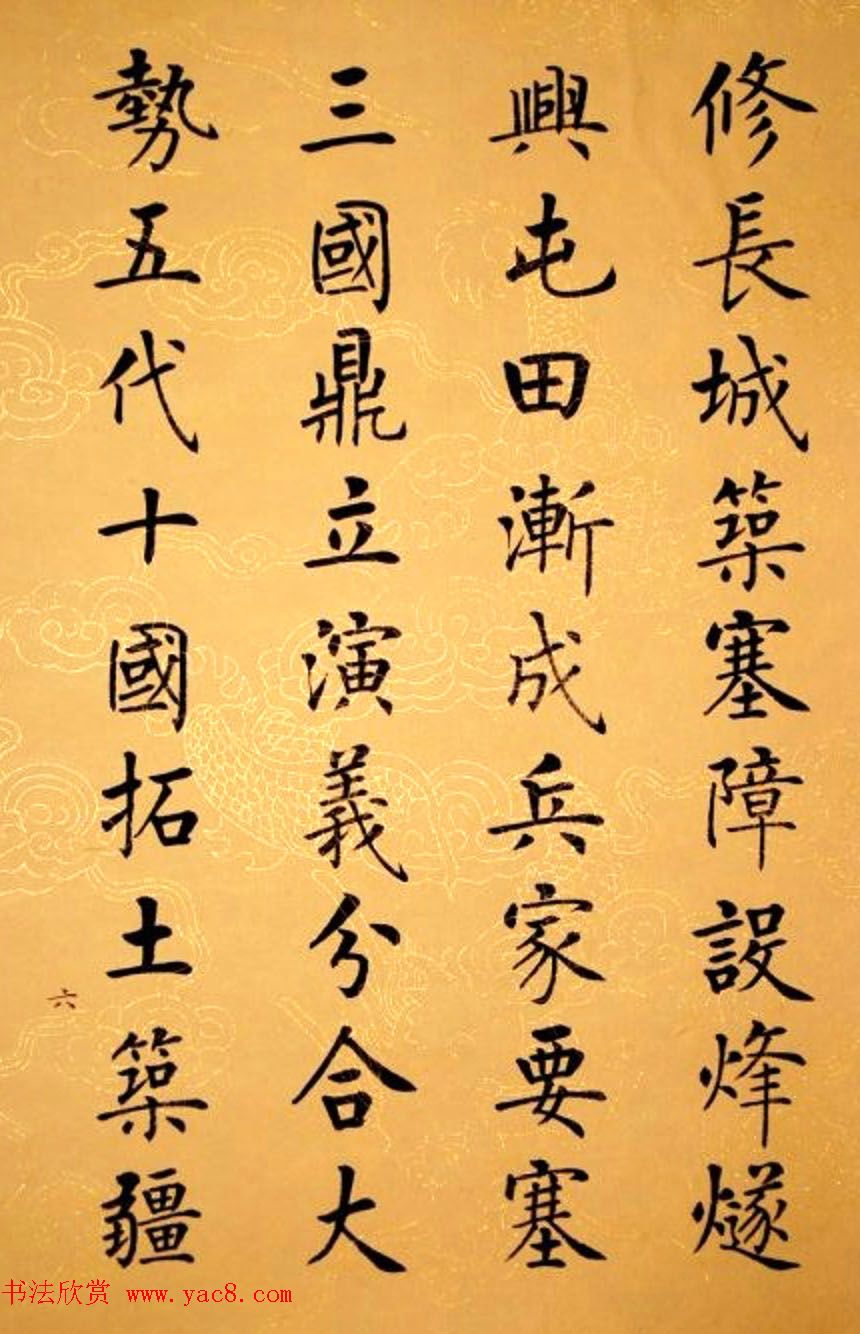 修長城築塞障設烽燧
興屯田漸成兵家要塞
三國鼎立演義分合大
勢五代十國拓土築疆
六
书法欣赏 www.yac8.com